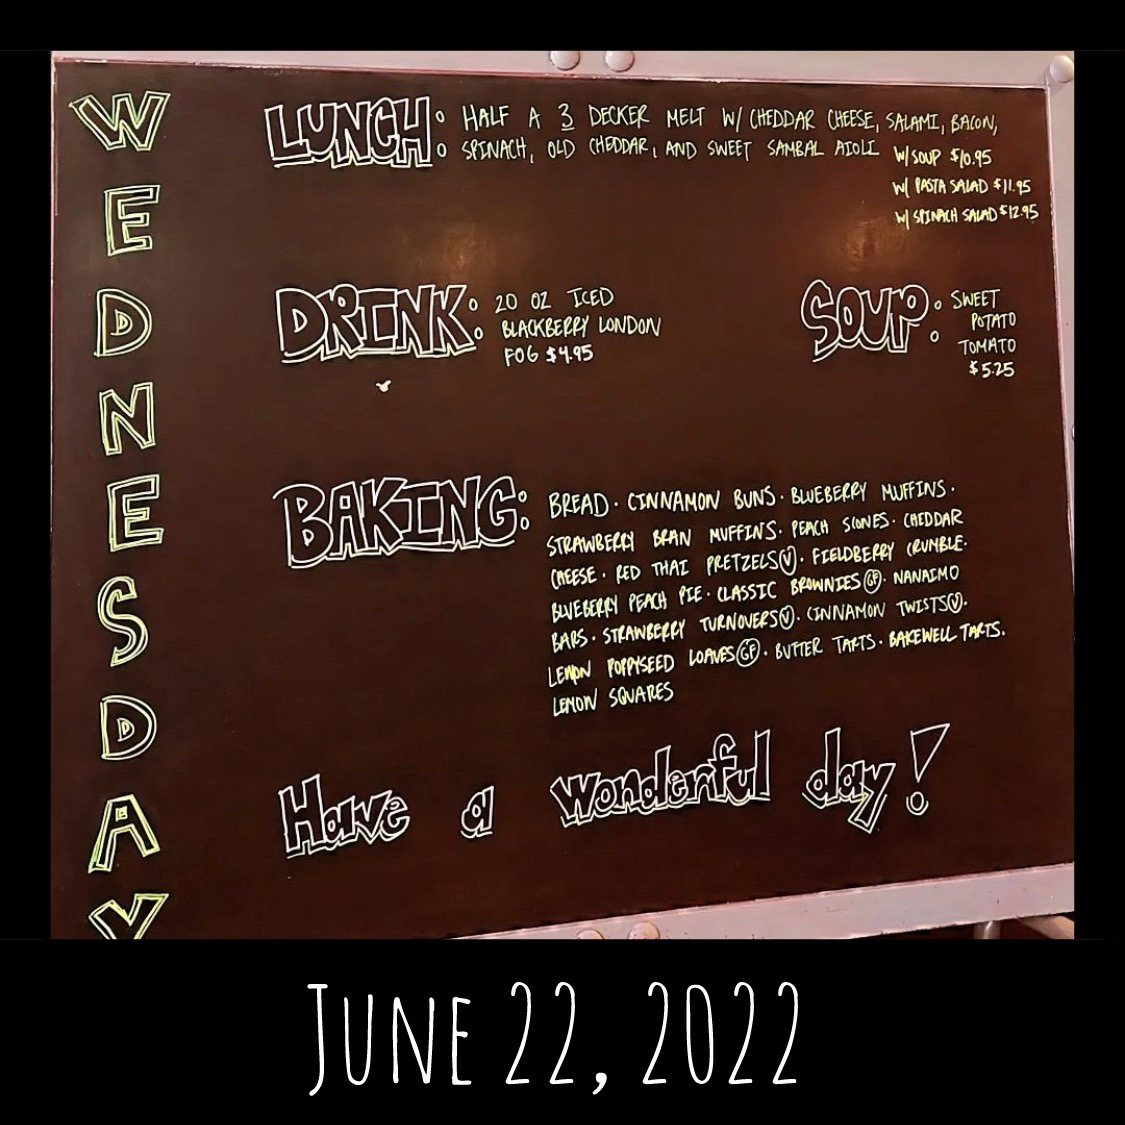 WEDNESDAY
LUNCH: HALF A 3 DECKER MELT W/ CHEDDAR CHEESE, SALAMI, BACON,
SPINACH, OLD CHEDDAR, AND SWEET SAMBAL AIOLI
W/ SOUP $10.95
W/ PASTA SALAD $11.95
W/ SPINACH SALAD $12.95
DRINK: 20 OZ ICED
BLACKBERRY LONDON
FOG $4.95
SOUP: SWEET
POTATO
TOMATO
$5.25
BAKING: BREAD · CINNAMON BUNS · BLUEBERRY MUFFINS ·
STRAWBERRY BRAN MUFFINS · PEACH SCONES · CHEDDAR
CHEESE · RED THAI PRETZELS Ⓥ · FIELDBERRY CRUMBLE ·
BLUEBERRY PEACH PIE · CLASSIC BROWNIES (GF) · NANAIMO
BARS · STRAWBERRY TURNOVERS Ⓥ · CINNAMON TWISTS Ⓥ ·
LEMON POPPYSEED LOAVES (GF) · BUTTER TARTS · BAKEWELL TARTS ·
LEMON SQUARES
Have a wonderful day!
JUNE 22, 2022